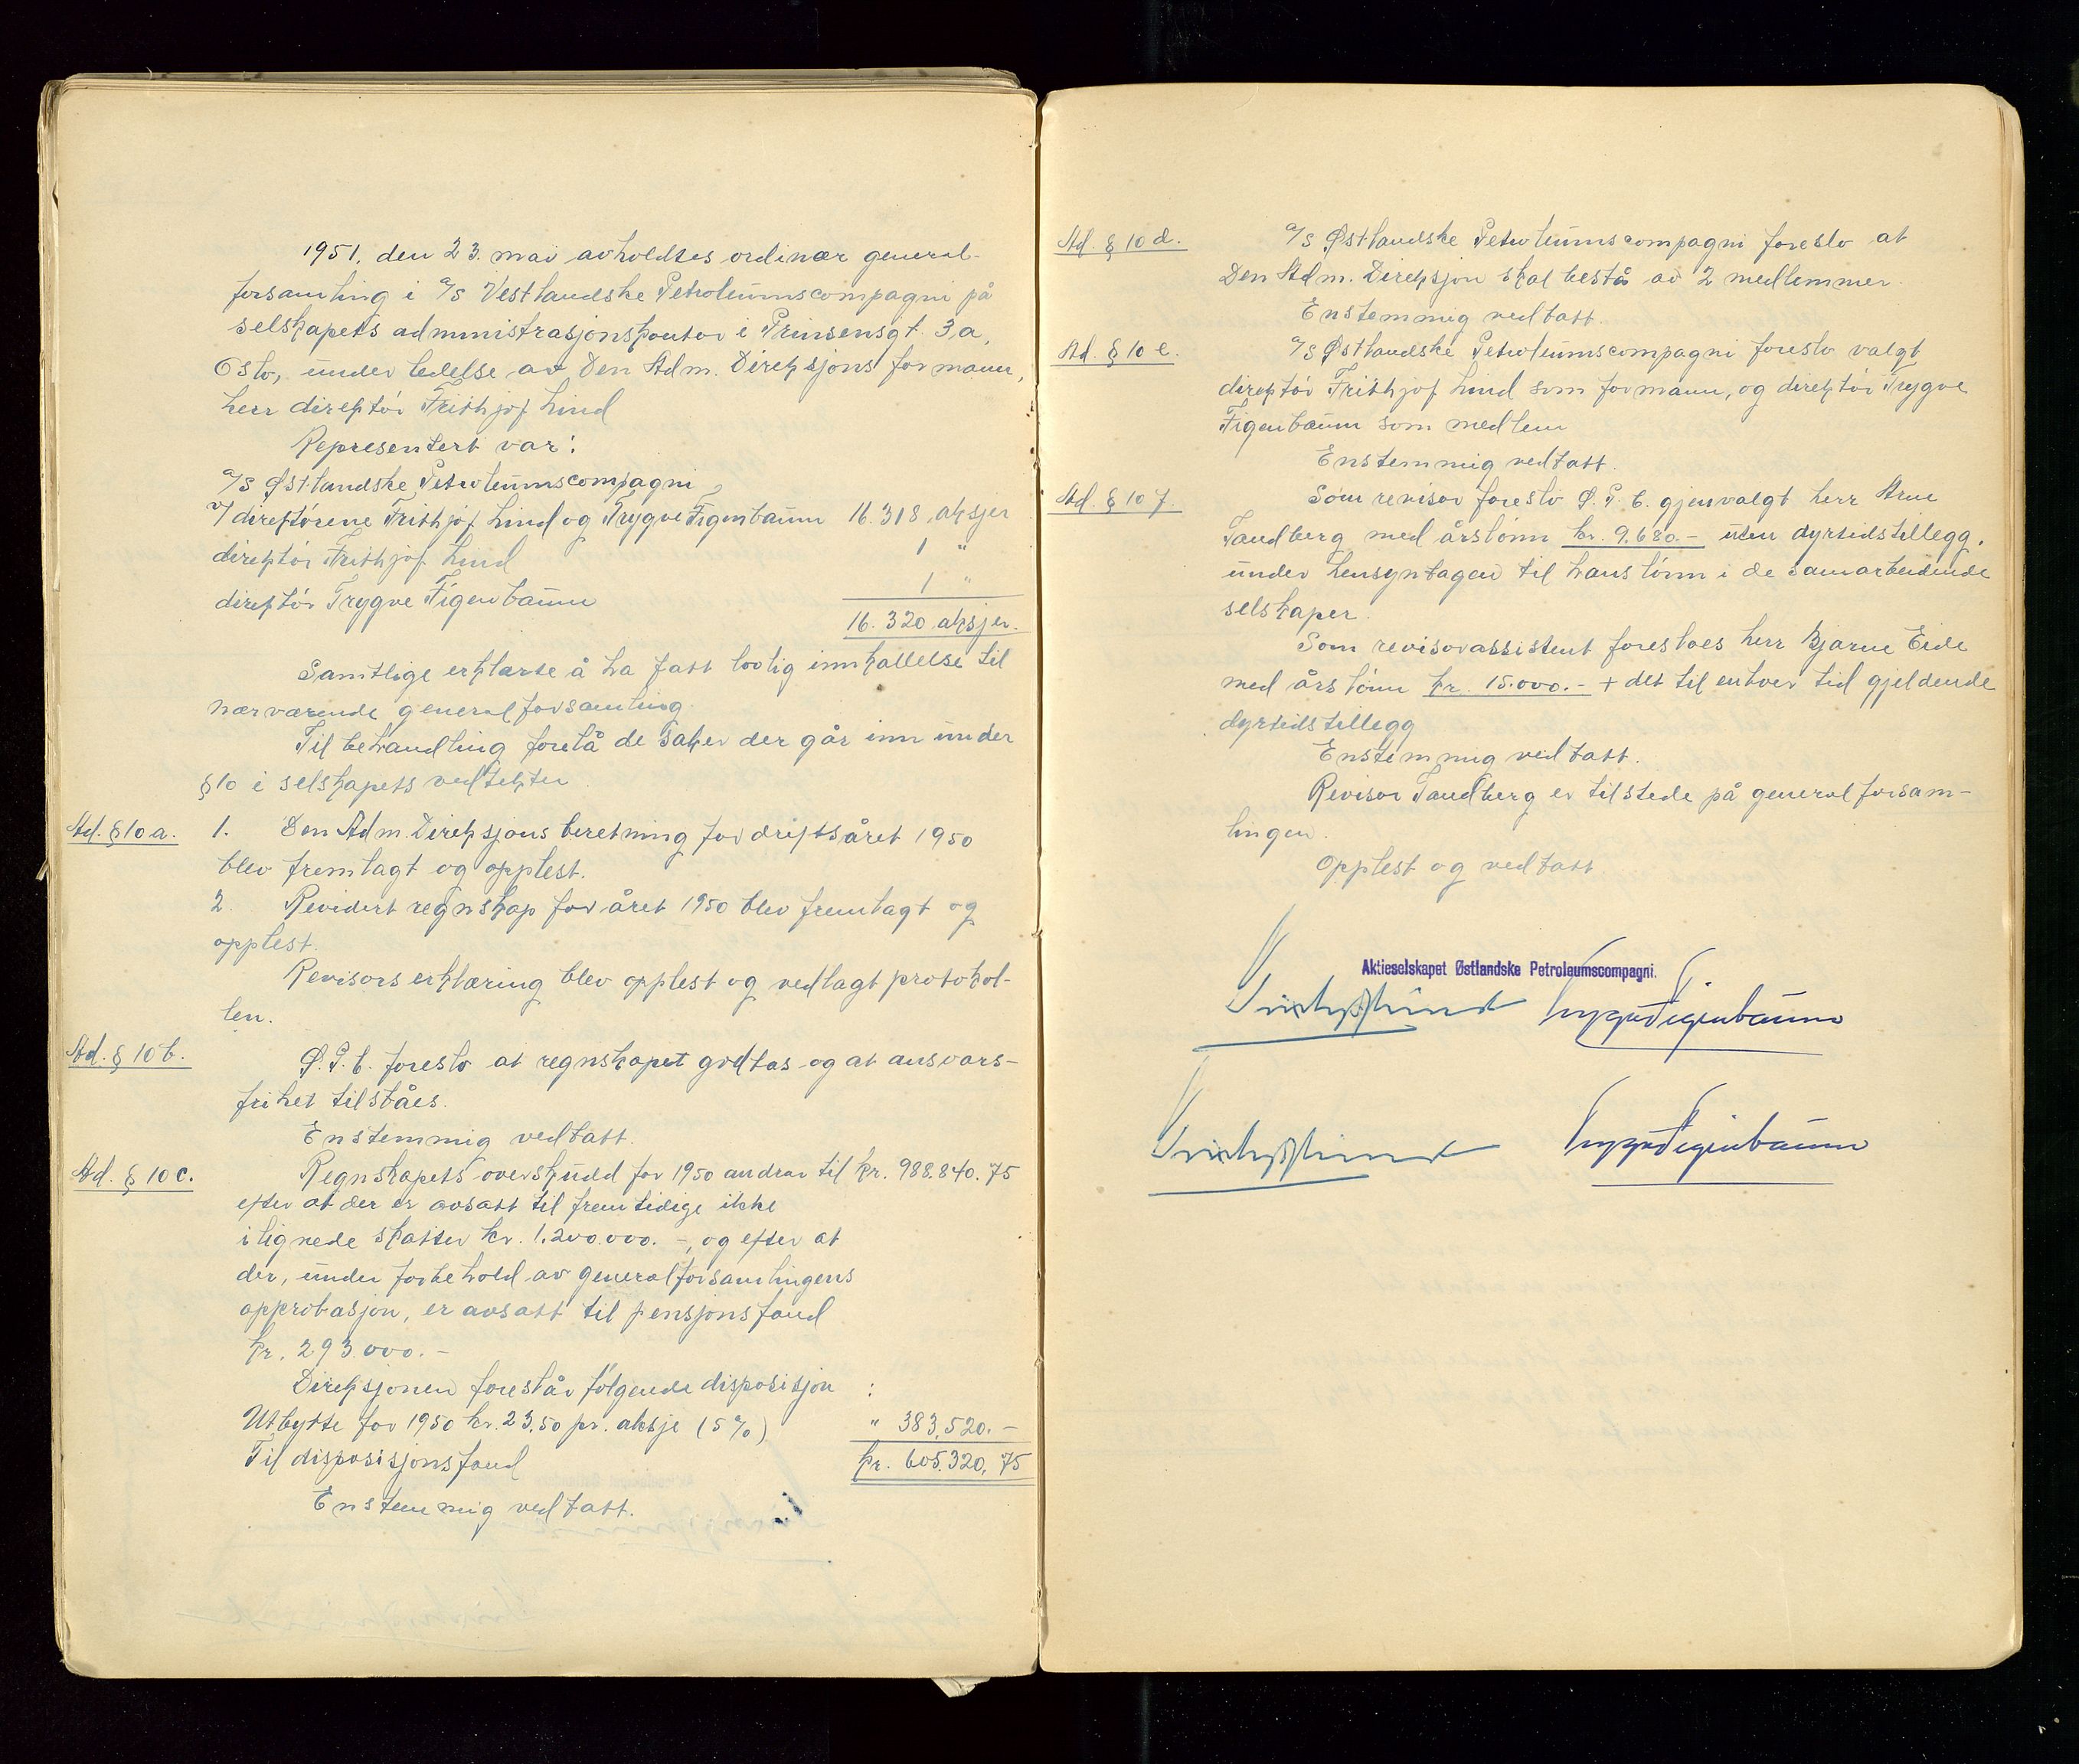 1951, den 23. mai avholdtes ordinær general-
forsamling i A/S Vestlandske Petroleumscompagni på
selskapets administrasjonskontor i Prinsensgt. 3a,
Oslo, under ledelse av Den Adm. Direksjons formann,
herr direktør Frithjof Lind
Representert var:
A/S Østlandske Petroleumscompagni
v/ direktørene Frithjof Lind og Trygve Figenbaum 16.318 aksjer
direktør Frithjof Lind 1 "
direktør Trygve Figenbaum 1 "
16.320 aksjer.
Samtlige erklærte å ha fått lovlig innkallelse til
nærværende generalforsamling.
Til behandling forelå de saker der går inn under
§10 i selskapets vedtekter
Ad. § 10 a. 1. Den Adm. Direksjons beretning for driftsåret 1950
blev fremlagt og opplest.
2. Revidert regnskap for året 1950 blev fremlagt og
opplest.
Revisors erklæring blev opplest og vedlagt protokol-
len.
Ad. § 10 b. Ø.P.C. foreslo at regnskapet godtas og at ansvars-
frihet tilståes.
Enstemmig vedtatt.
Ad. § 10 c. Regnskapets overskudd for 1950 andrar til kr. 988.840.75
efter at der er avsatt til fremtidige ikke
ilignede skatter kr. 1.200.000.-, og efter at
der, under forbehold av generalforsamlingens
approbasjon, er avsatt til pensjonsfond
kr. 293.000.-
Direksjonen foreslår følgende disposisjon :
Utbytte for 1950 kr. 23.50 pr. aksje (5%) " 383.520.-
Til disposisjonsfond kr. 605.320,75
Enstemmig vedtatt.
Ad. § 10 d. A/S Østlandske Petroleumscompagni foreslo at
Den Adm. Direksjon skal bestå av 2 medlemmer.
Enstemmig vedtatt.
Ad. § 10 e. A/S Østlandske Petroleumscompagni foreslo valgt
direktør Frithjof Lind som formann, og direktør Trygve
Figenbaum som medlem
Enstemmig vedtatt.
Ad. § 10 f. Som revisor foreslo Ø.P.C. gjenvalgt herr Arne
Tandberg med årslønn kr. 9.680.- uten dyrtidstillegg,
under hensyntagen til hans lønn i de samarbeidende
selskaper.
Som revisorassistent foresloes herr Bjarne Eide
med årslønn kr. 15.000.- + det til enhver tid gjeldende
dyrtidstillegg
Enstemmig vedtatt.
Revisor Tandberg er tilstede på generalforsam-
lingen.
Opplest og vedtatt
Aktieselskapet Østlandske Petroleumscompagni.
Frithjof Lind Trygve Figenbaum
Frithjof Lind Trygve Figenbaum